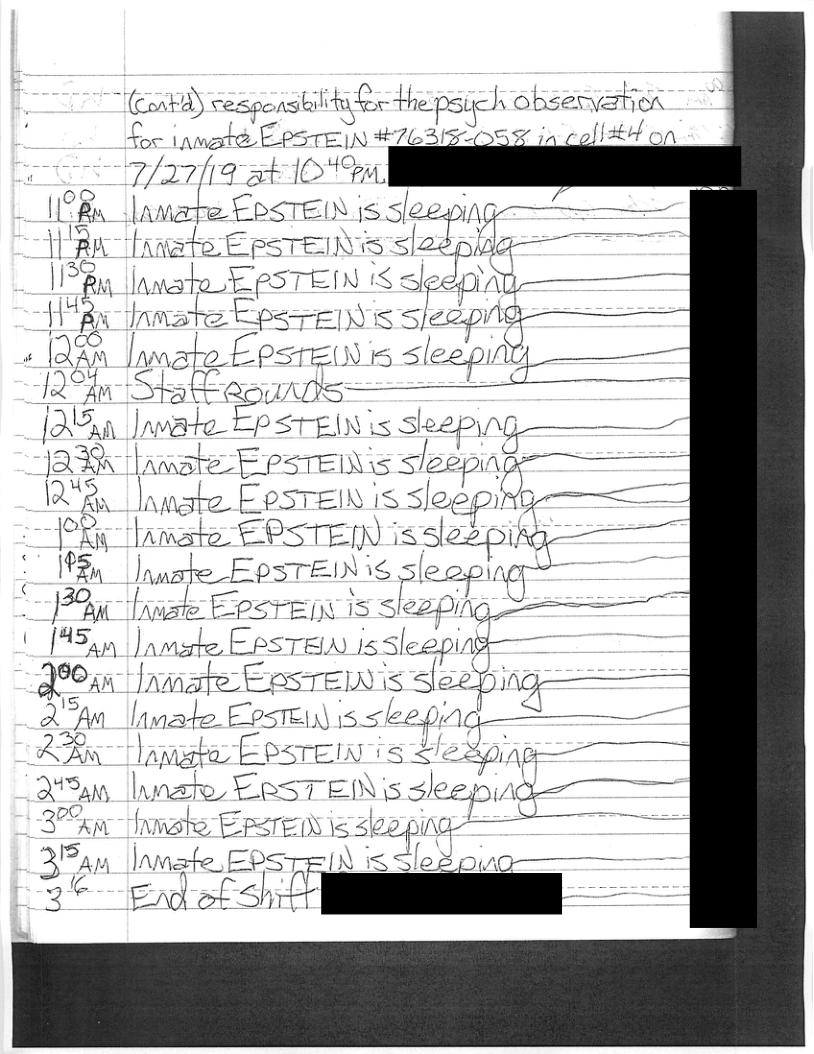 (Cont'd) responsibility for the psych observation
for inmate EPSTEIN #76318-058 in cell #4 on
7/27/19 at 10 40 PM.
11 00 PM Inmate EPSTEIN is sleeping
11 15 PM Inmate EPSTEIN is sleeping
11 30 PM Inmate EPSTEIN is sleeping
11 45 PM Inmate EPSTEIN is sleeping
12 00 AM Inmate EPSTEIN is sleeping
12 04 AM Staff Rounds
12 15 AM Inmate EPSTEIN is sleeping
12 30 AM Inmate EPSTEIN is sleeping
12 45 AM Inmate EPSTEIN is sleeping
1 00 AM Inmate EPSTEIN is sleeping
1 15 AM Inmate EPSTEIN is sleeping
1 30 AM Inmate EPSTEIN is sleeping
1 45 AM Inmate EPSTEIN is sleeping
2 00 AM Inmate EPSTEIN is sleeping
2 15 AM Inmate EPSTEIN is sleeping
2 30 AM Inmate EPSTEIN is sleeping
2 45 AM Inmate EPSTEIN is sleeping
3 00 AM Inmate EPSTEIN is sleeping
3 15 AM Inmate EPSTEIN is sleeping
3 16 End of Shift